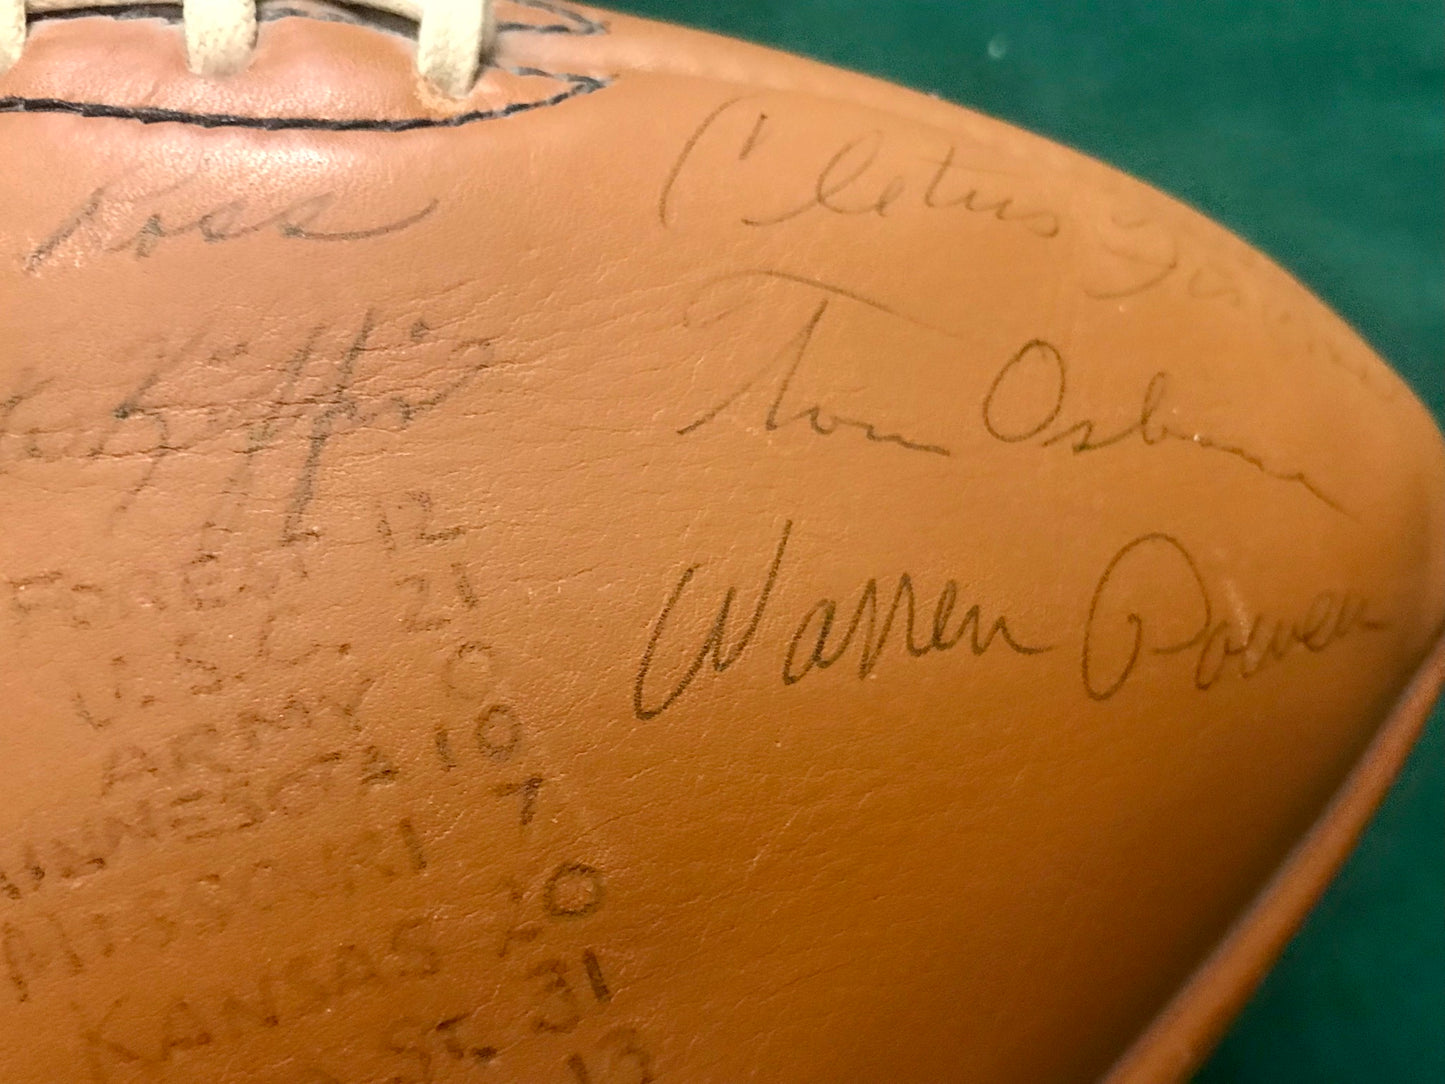 Ross
Cletus
Kiffin
Tom Osborne
Warren Powers
FOREST 12
U.S.C. 21
ARMY 0
MINNESOTA 10
MISSOURI 7
KANSAS 20
ST. 31
13